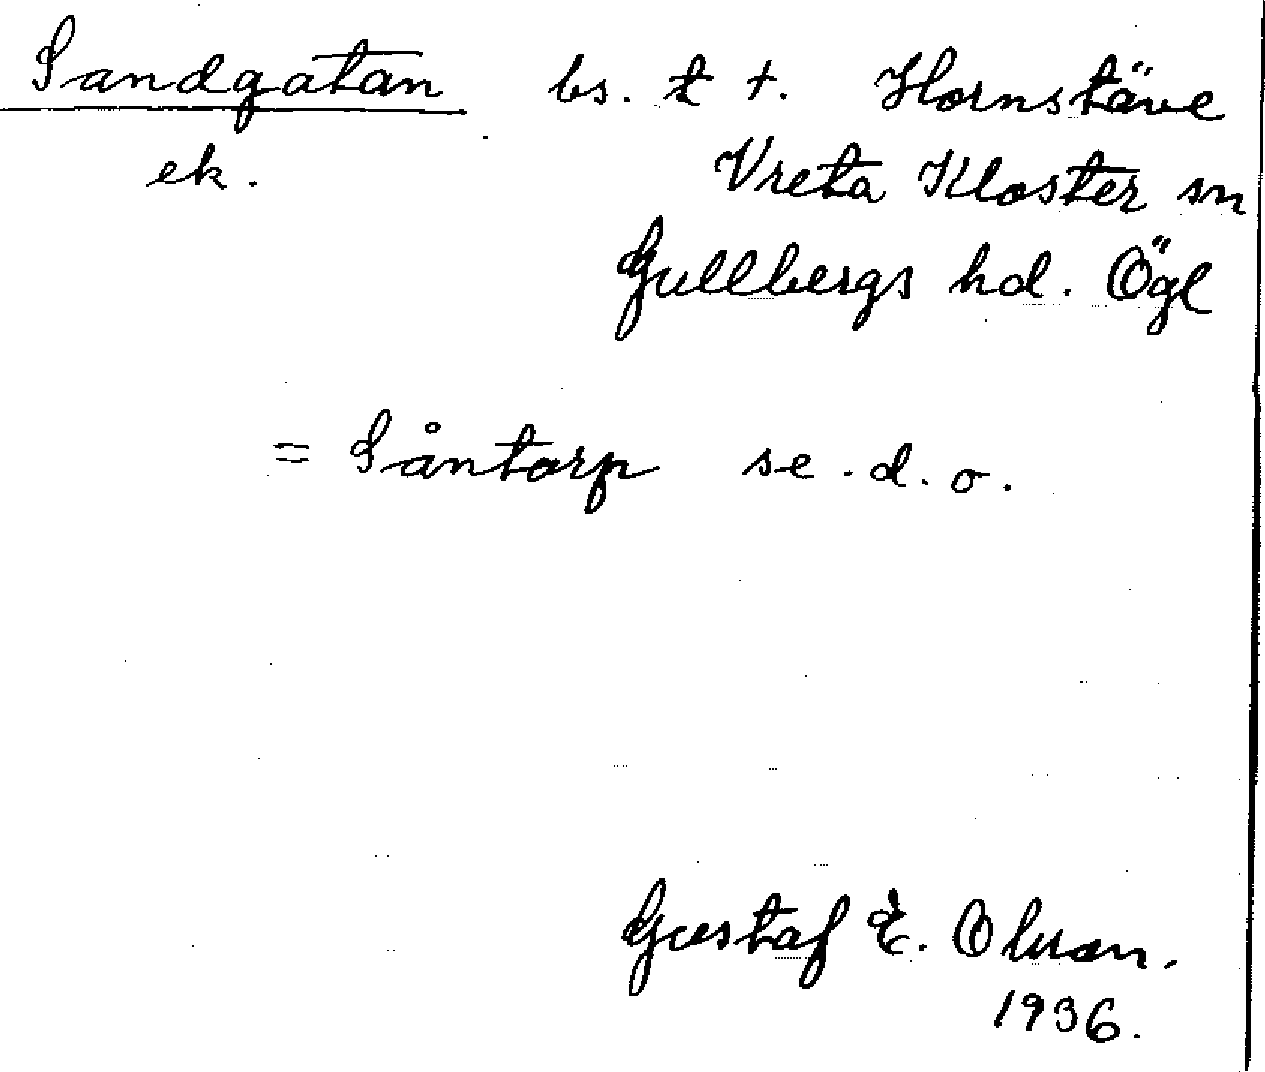 Sandgatan bs. t t. Hornstäve
ek. Vreta Kloster sn
Gullbergs hd. Ögl
= Såntorp se. d. o.
Gustaf E. Olsson.
1936.